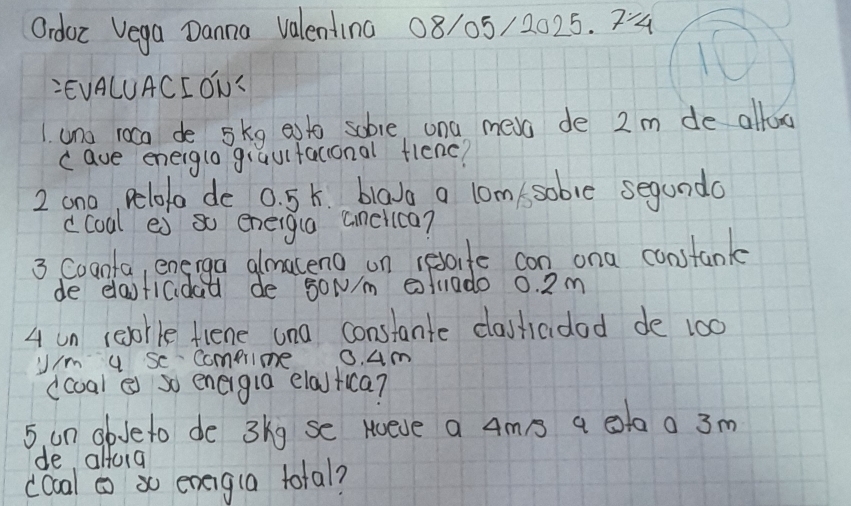 Ordoz Vega Danna Valentina 08/05/2025. 7°4
10
>EVALUACIÓN<
1. una roca de 5kg esta sobre una mesa de 2m de altura
¿ que energia gravitacional tiene?
2 una pelota de 0.5 k. biaja a 10m/s sobre segundo
¿cual es su energia cinetica?
3 Cuanta energa almacena un resorte con una constante
de elasticidad de 50N/m estirado 0.2m
4 un resorte tiene una constante elasticidad de 100
N/m y se comprime 0.4m
¿cual es su energia elastica?
5. un objeto de 3kg se mueve a 4m/s y esta a 3m
de altura
¿cual es su energia total?